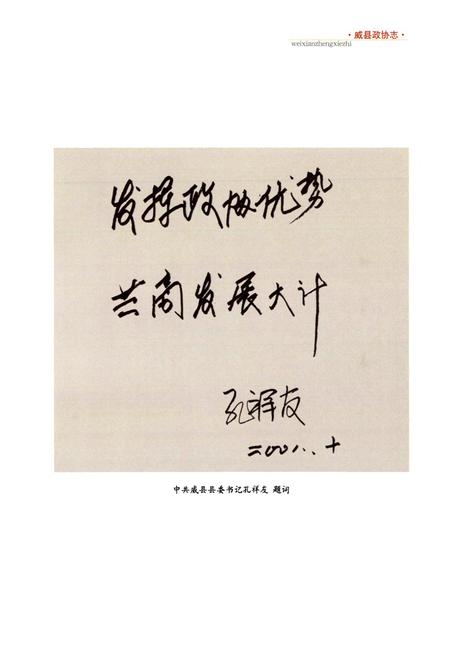 ·威县政协志·
weixianzhengxiezhi
发挥政协优势
共商发展大计
孔祥友
二〇〇一.十
中共威县县委书记孔祥友 题词